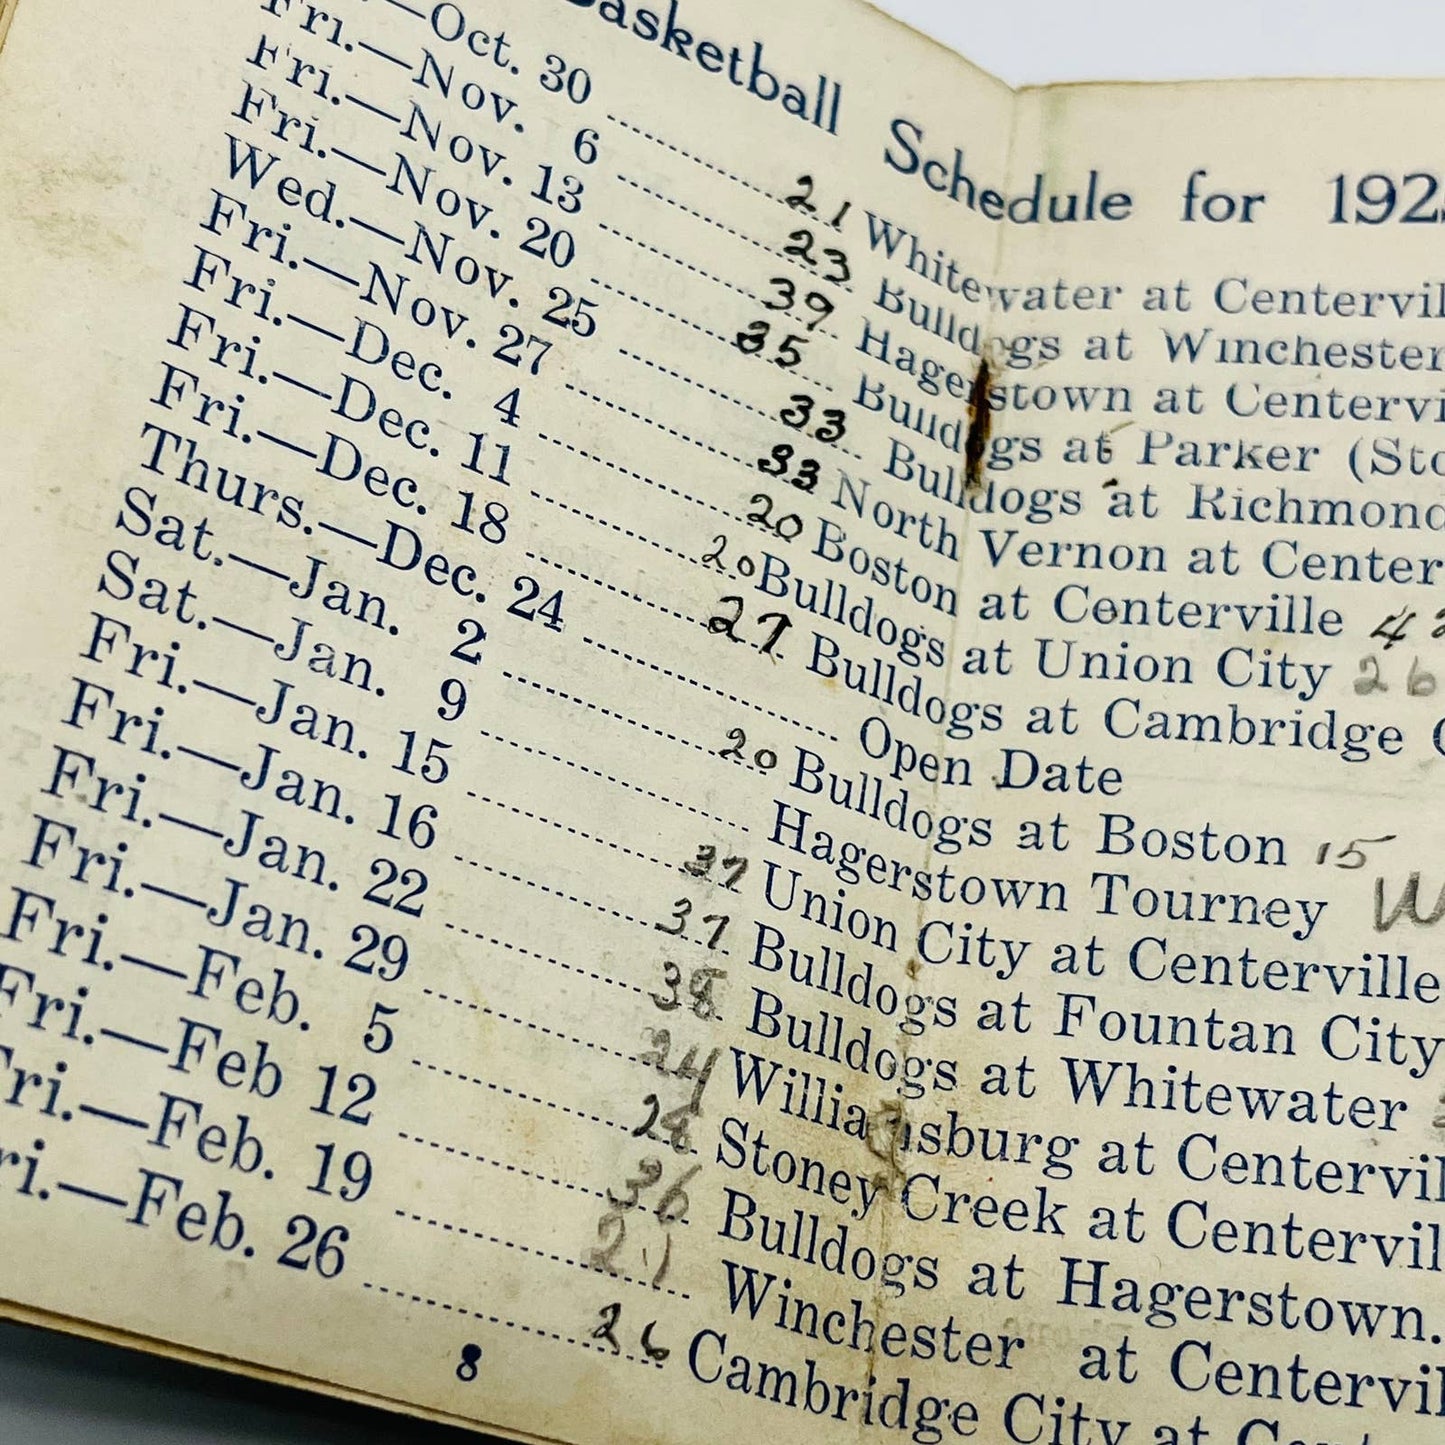 Basketball Schedule for 192
Oct. 30 21 Whitewater at Centervil
Fri.—Nov. 6 23 Bulldogs at Winchester
Fri.—Nov. 13 39 Hagerstown at Centervi
Fri.—Nov. 20 35 Bulldogs at Parker (Sto
Wed.—Nov. 25 33 Bulldogs at Richmond
Fri.—Nov. 27 33 North Vernon at Center
Fri.—Dec. 4 20 Boston at Centerville 42
Fri.—Dec. 11 20 Bulldogs at Union City 26
Fri.—Dec. 18 27 Bulldogs at Cambridge C
Thurs.—Dec. 24 Open Date
Sat.—Jan. 2 20 Bulldogs at Boston 15
Sat.—Jan. 9 Hagerstown Tourney W
Fri.—Jan. 15 37 Union City at Centerville
Fri.—Jan. 16 37 Bulldogs at Fountan City
Fri.—Jan. 22 38 Bulldogs at Whitewater
Fri.—Jan. 29 24 Williamsburg at Centervil
Fri.—Feb. 5 28 Stoney Creek at Centervil
Fri.—Feb 12 36 Bulldogs at Hagerstown.
Fri.—Feb. 19 21 Winchester at Centervil
Fri.—Feb. 26 26 Cambridge City at Cent
8